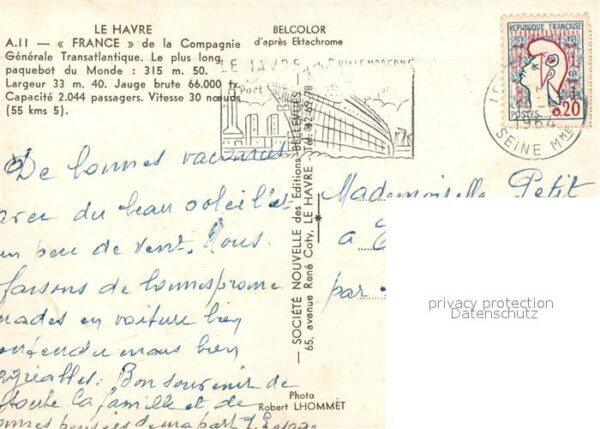 LE HAVRE
A.11 — « FRANCE » de la Compagnie
Générale Transatlantique. Le plus long
paquebot du Monde : 315 m. 50.
Largeur 33 m. 40. Jauge brute 66.000 tx
Capacité 2.044 passagers. Vitesse 30 nœuds
(55 kms 5).
BELCOLOR
d'après Ektachrome
LE HAVRE
VILLE MODERNE
Port
REPUBLIQUE FRANÇAISE
POSTES 0,20
1964
SEINE MME
De bonnes vacances
avec du beau soleil et
un peu de vent. Nous
faisons de bonnes prome
nades en voiture bien
entendu mais bien
agréables. Bon souvenir de
toute la famille et de
bonnes pensées de ma part
SOCIÉTÉ NOUVELLE des Editions BELLEVUES
65, avenue René Coty, LE HAVRE Tél. 42.69.78
Mademoiselle Petit
a
par
Photo
Robert LHOMMET
privacy protection
Datenschutz